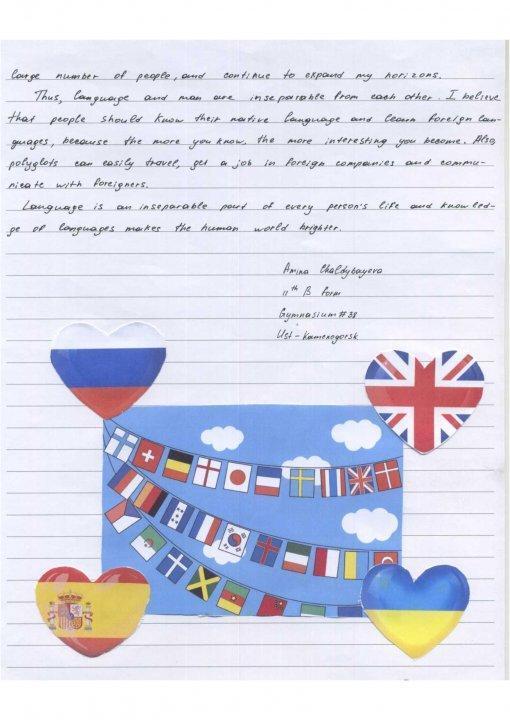 large number of people, and continue to expand my horizons.
Thus, language and man are inseparable from each other. I believe
that people should know their native language and learn foreign lan-
guages, because the more you know, the more interesting you become. Also,
polyglots can easily travel, get a job in foreign companies and commu-
nicate with foreigners.
Language is an inseparable part of every person's life and knowled-
ge of languages makes the human world brighter.
Amina Chaldybayeva
11th B form
Gymnasium #38
Ust-Kamenogorsk